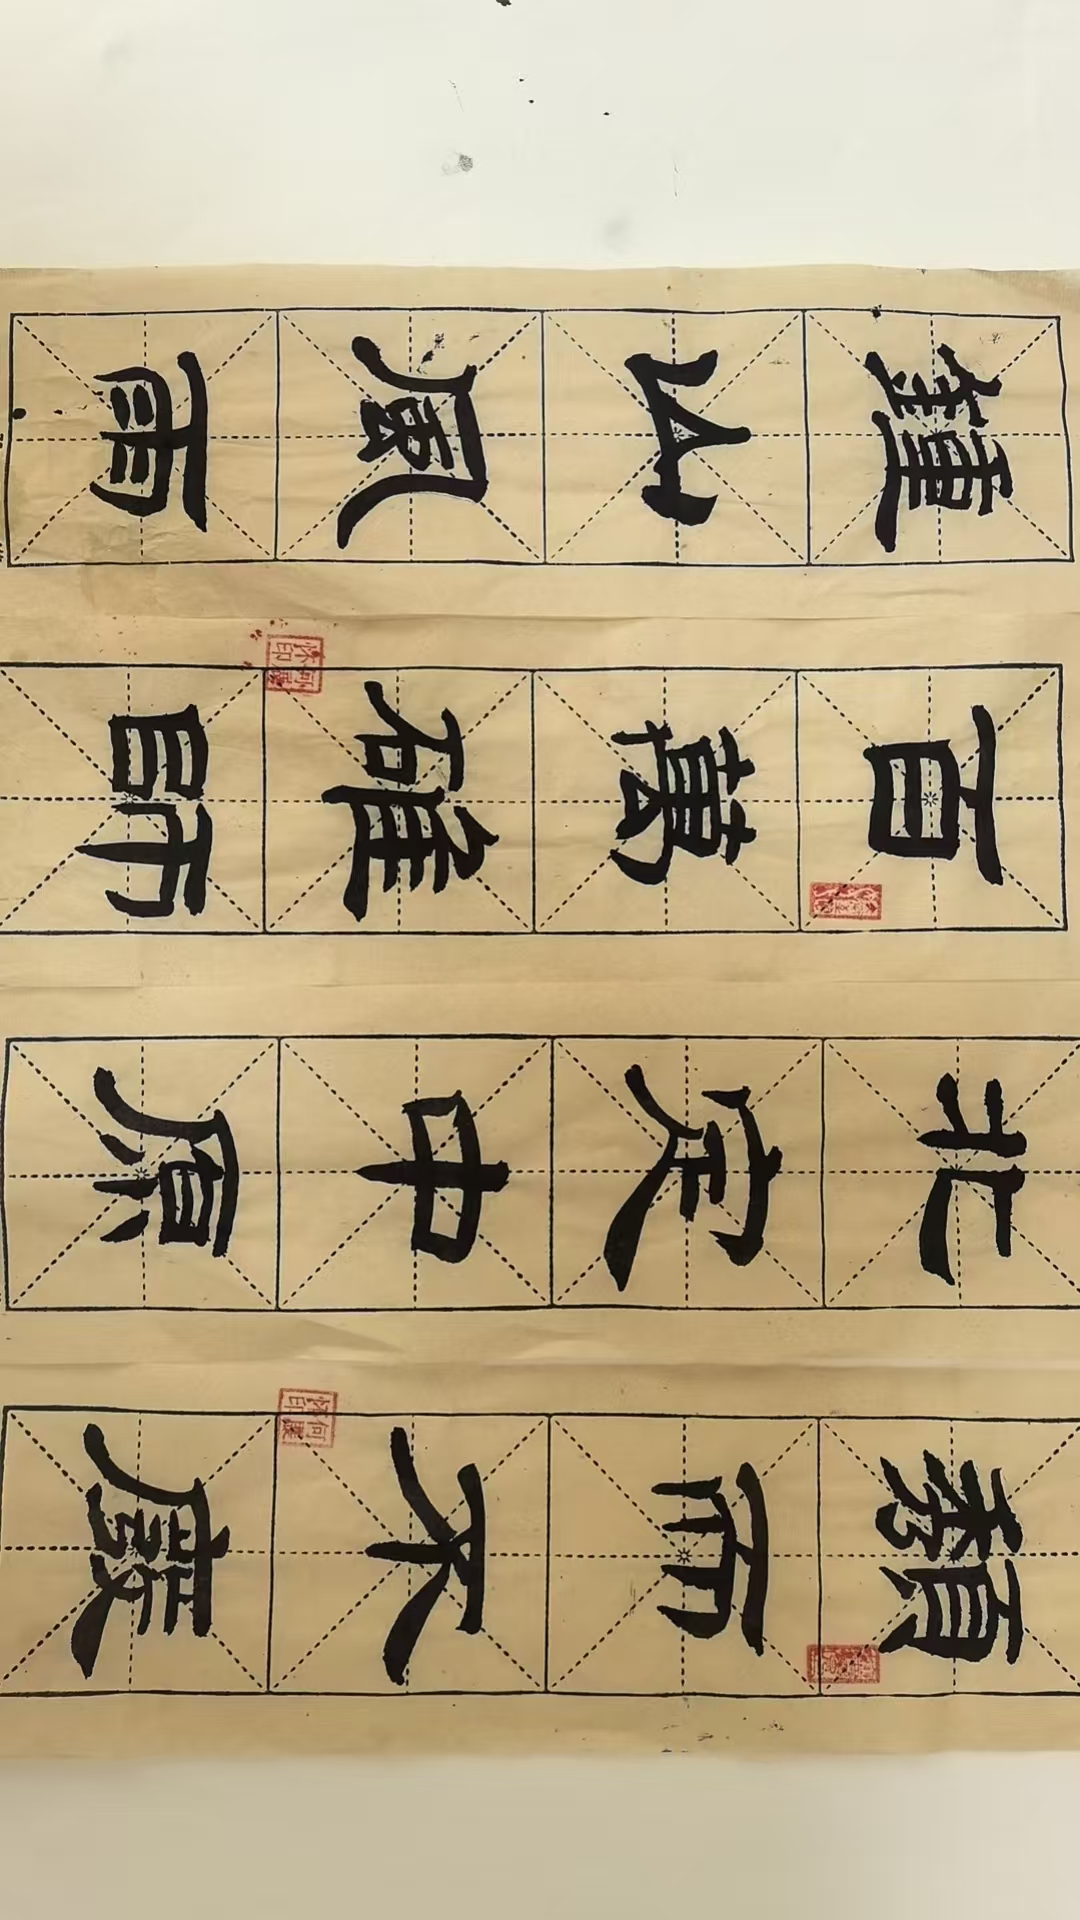 頽而不廢
北定中原
百萬雄師
鍾山風雨